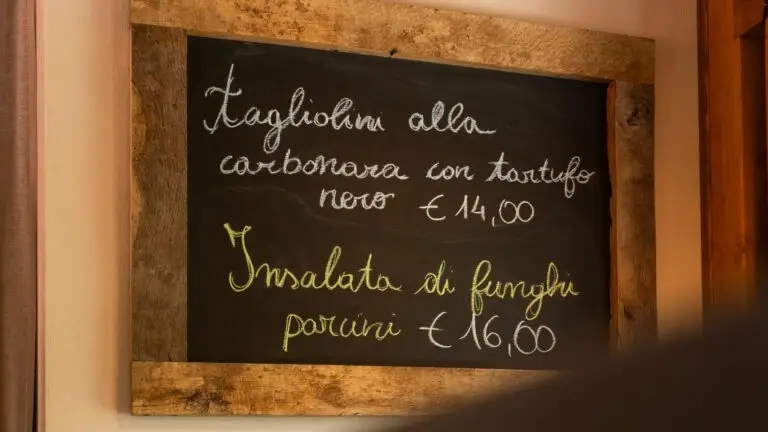 Tagliolini alla
carbonara con tartufo
nero €14,00
Insalata di funghi
porcini €16,00